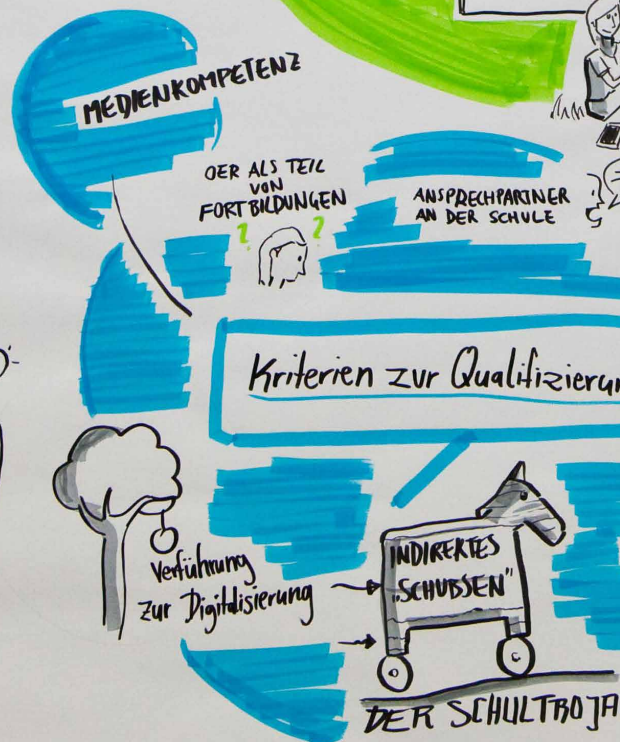 MEDIENKOMPETENZ
OER ALS TEIL
VON
FORTBILDUNGEN
? ?
ANSPRECHPARTNER
AN DER SCHULE
Kriterien zur Qualifizierun
Verführung
zur Digitalisierung
INDIREKTES
„SCHUBSEN"
DER SCHULTROJA